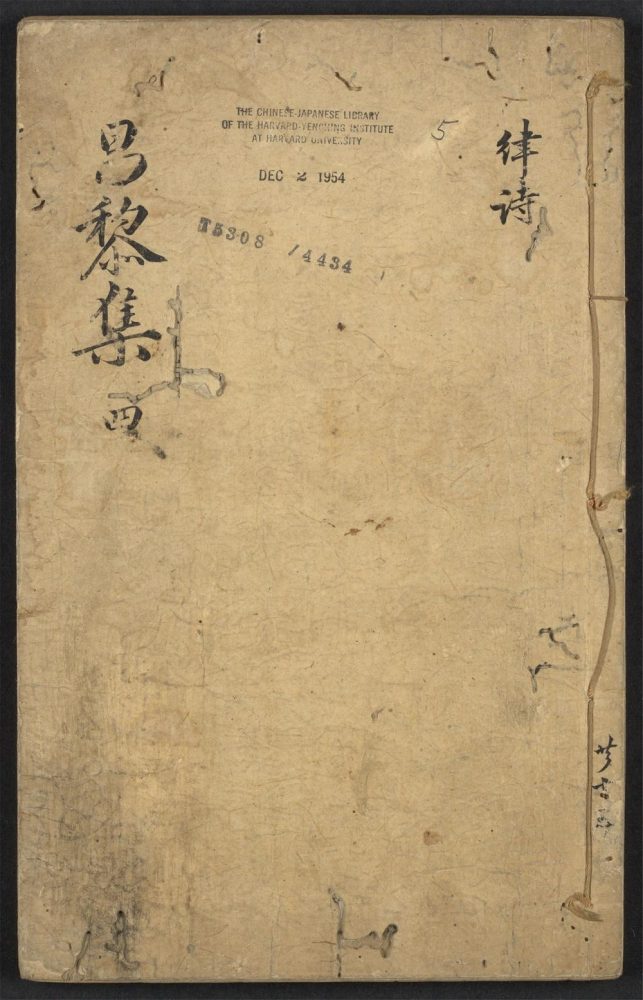 律詩
昌黎集 四
THE CHINESE-JAPANESE LIBRARY
OF THE HARVARD-YENCHING INSTITUTE
AT HARVARD UNIVERSITY
DEC 2 1954
5
T5308 /4434